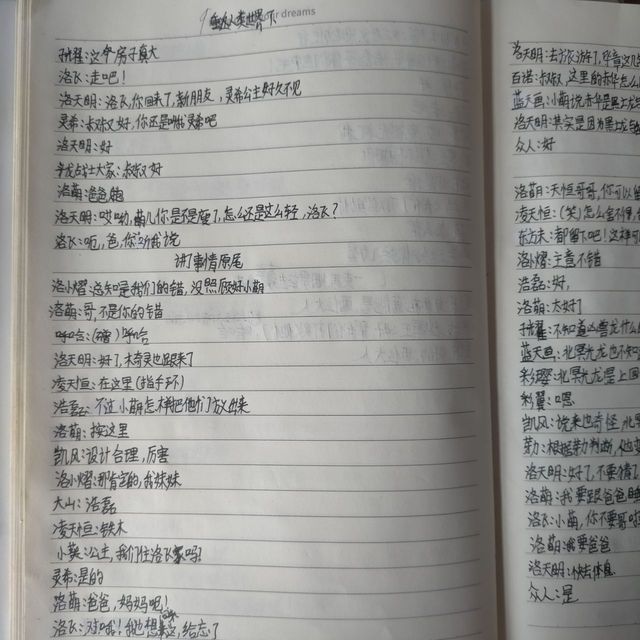 r dreams
人类世界
子耀:这个房子真大
洛飞:走吧!
洛天明:洛飞,你回来了,新朋友,灵希公主好久不见
灵希:叔叔好,你还是叫我灵希吧
洛天明:好
战士大家:叔叔好
洛萌:爸爸,抱
洛天明:哎呦,萌儿你是不是瘦了,怎么还是这么轻,洛飞?
洛飞:呃,爸,你听我说
讲了事情原尾
洛小熠:总知是我们的错,没照顾好小萌
洛萌:哥,不是你的错
呼哈:呼哈
洛天明:好了,木奇灵也跟来了
凌天恒:在这里(指手环)
浩磊:不过小萌怎样把他们放出来
洛萌:按这里
凯风:设计合理,厉害
洛小熠:那肯定的,我妹妹
大山:浩磊
凌天恒:铁木
小英:公主,我们住洛飞家吗?
灵希:是的
洛萌:爸爸,妈妈呢!
洛飞:对哦!我也想,给忘了
洛天明:去旅游了,毕竟这几
百诺:叔叔,这里的赤华怎么
蓝天画:小萌说赤华是黑
洛天明:其实是因为黑
众人:好
洛萌:天恒哥哥,你可以留
凌天恒:(笑)怎么舍不得,
东方末:都留下吧!这样可
洛小熠:主意不错
浩磊:好,
洛萌:太好了
子耀:不知道凶兽龙什么
蓝天画:北冥光龙也不知
彩璎:北冥光龙是上
利翼:嗯
凯风:说来也奇怪,北
勒:根据勒判断,他
洛天明:好了,不要猜了
洛萌:我要跟爸爸睡
洛飞:小萌,你不要哥
洛萌:我要爸爸
洛天明:快去休息
众人:是